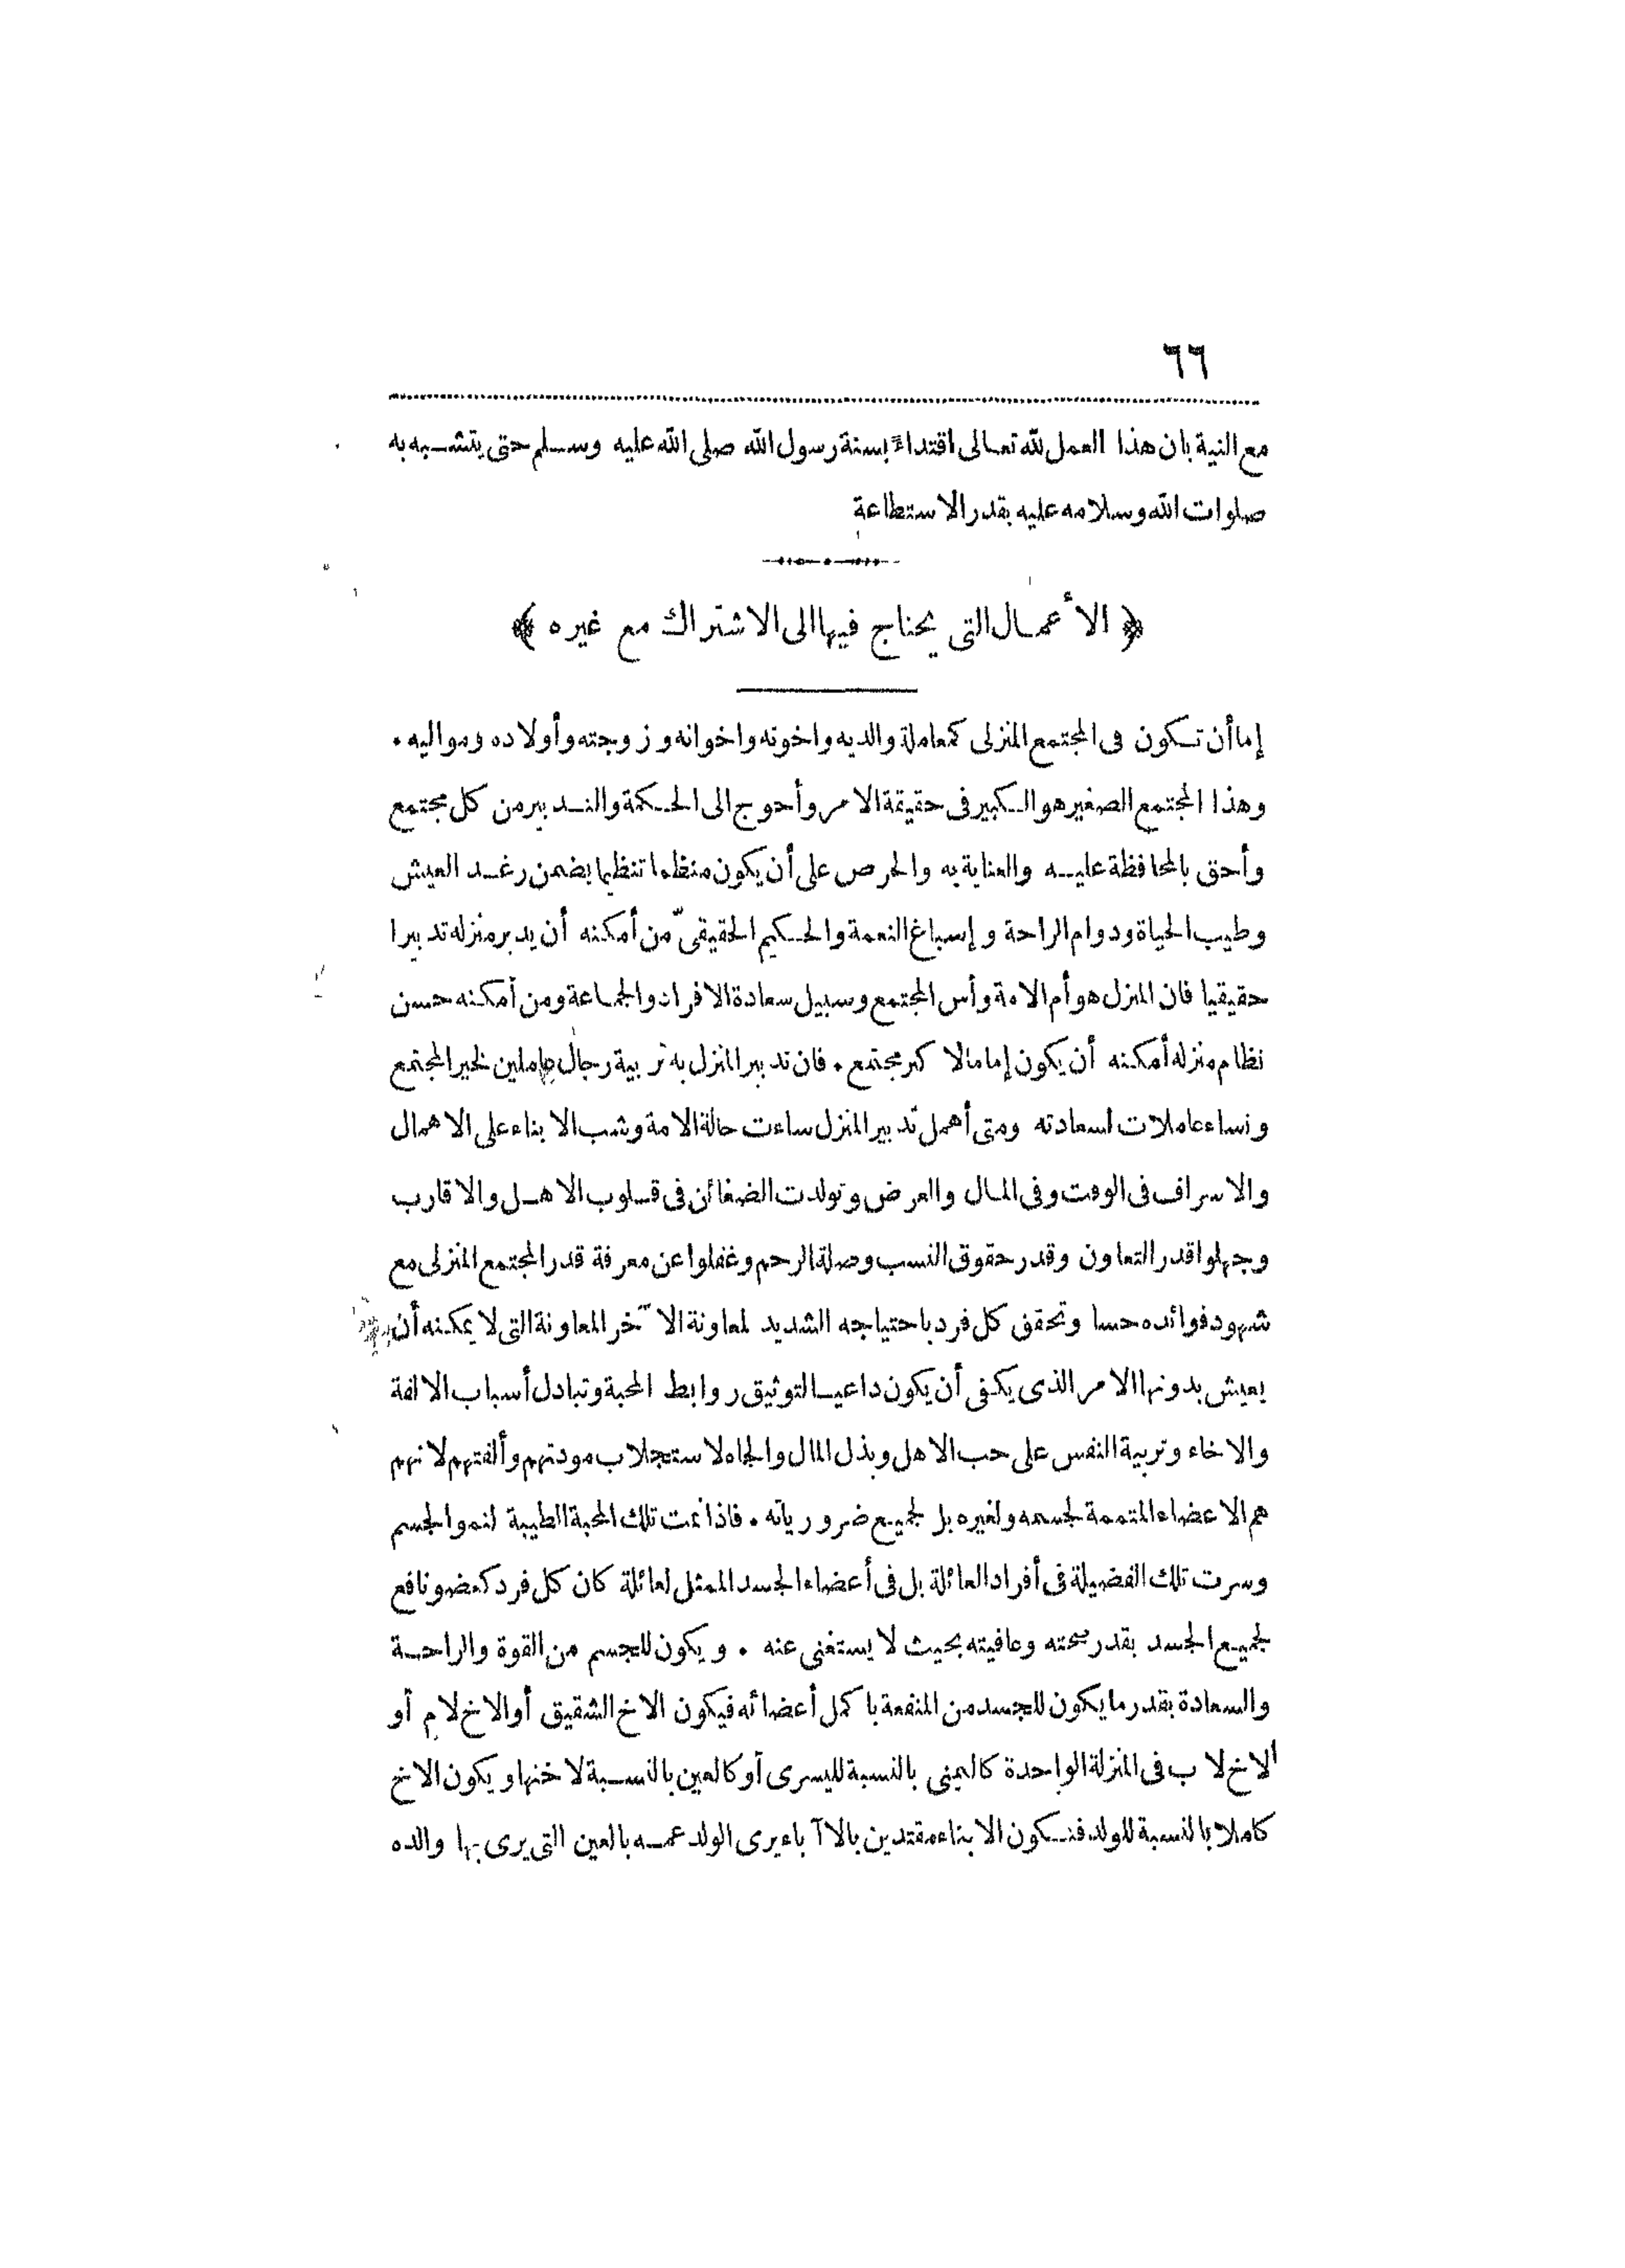 ٦٦
مع النية بان هذا العمل لله تعالى اقتداءً بسنة رسول الله صلى الله عليه وسلم حتى يتشبه به
صلوات الله وسلامه عليه بقدر الاستطاعة
﴿ الأعمال التى يحتاج فيها الى الاشتراك مع غيره ﴾
إما أن تكون فى المجتمع المنزلى كمعاملة والديه واخوته واخوانه وزوجته وأولاده ومواليه .
وهذا المجتمع الصغير هو الكبير فى حقيقة الامر وأحوج الى الحكمة والتدبير من كل مجتمع
وأحق بالمحافظة عليه والعناية به والحرص على أن يكون منظما تنظيما يضمن رغد العيش
وطيب الحياة ودوام الراحة وإسباغ النعمة والحكيم الحقيقىّ من أمكنه أن يدبر منزله تدبيرا
حقيقيا فان المنزل هو أم الامة وأس المجتمع وسبيل سعادة الافراد والجماعة ومن أمكنه حسن
نظام منزله أمكنه أن يكون إماما لا كبر مجتمع . فان تدبير المنزل به تربية رجال عاملين لخير المجتمع
ونساء عاملات لسعادته ومتى أهمل تدبير المنزل ساءت حالة الامة وشب الابناء على الاهمال
والاسراف فى الوقت وفى المال والعرض وتولدت الضغائن فى قلوب الاهل والاقارب
وجهلوا قدر التعاون وقدر حقوق النسب وصلة الرحم وغفلوا عن معرفة قدر المجتمع المنزلى مع
شهود فوائده حسا وتحقق كل فرد باحتياجه الشديد لمعاونة الآخر المعاونة التى لا يمكنه أن
يعيش بدونها الامر الذى يكفى أن يكون داعيا لتوثيق روابط المحبة وتبادل أسباب الالفة
والاخاء وتربية النفس على حب الاهل وبذل المال والجاه لاستجلاب مودتهم وألفتهم لانهم
هم الاعضاء المتممة لجسمه ولغيره بل لجميع ضرورياته . فاذا نمت تلك المحبة الطيبة لنمو الجسم
وسرت تلك الفضيلة فى أفراد العائلة بل فى أعضاء الجسد الممثل لعائلة كان كل فرد كعضو نافع
لجميع الجسد بقدر صحته وعافيته بحيث لا يستغنى عنه . ويكون للجسم من القوة والراحة
والسعادة بقدر ما يكون للجسد من المنفعة باكمل أعضائه فيكون الاخ الشقيق أو الاخ لام أو
الاخ لاب فى المنزلة الواحدة كاليمنى بالنسبة لليسرى أو كالعين بالنسبة لاختها ويكون الاخ
كاملا بالنسبة للولد فتكون الابناء مقتدين بالآباء يرى الولد عمه بالعين التى يرى بها والده